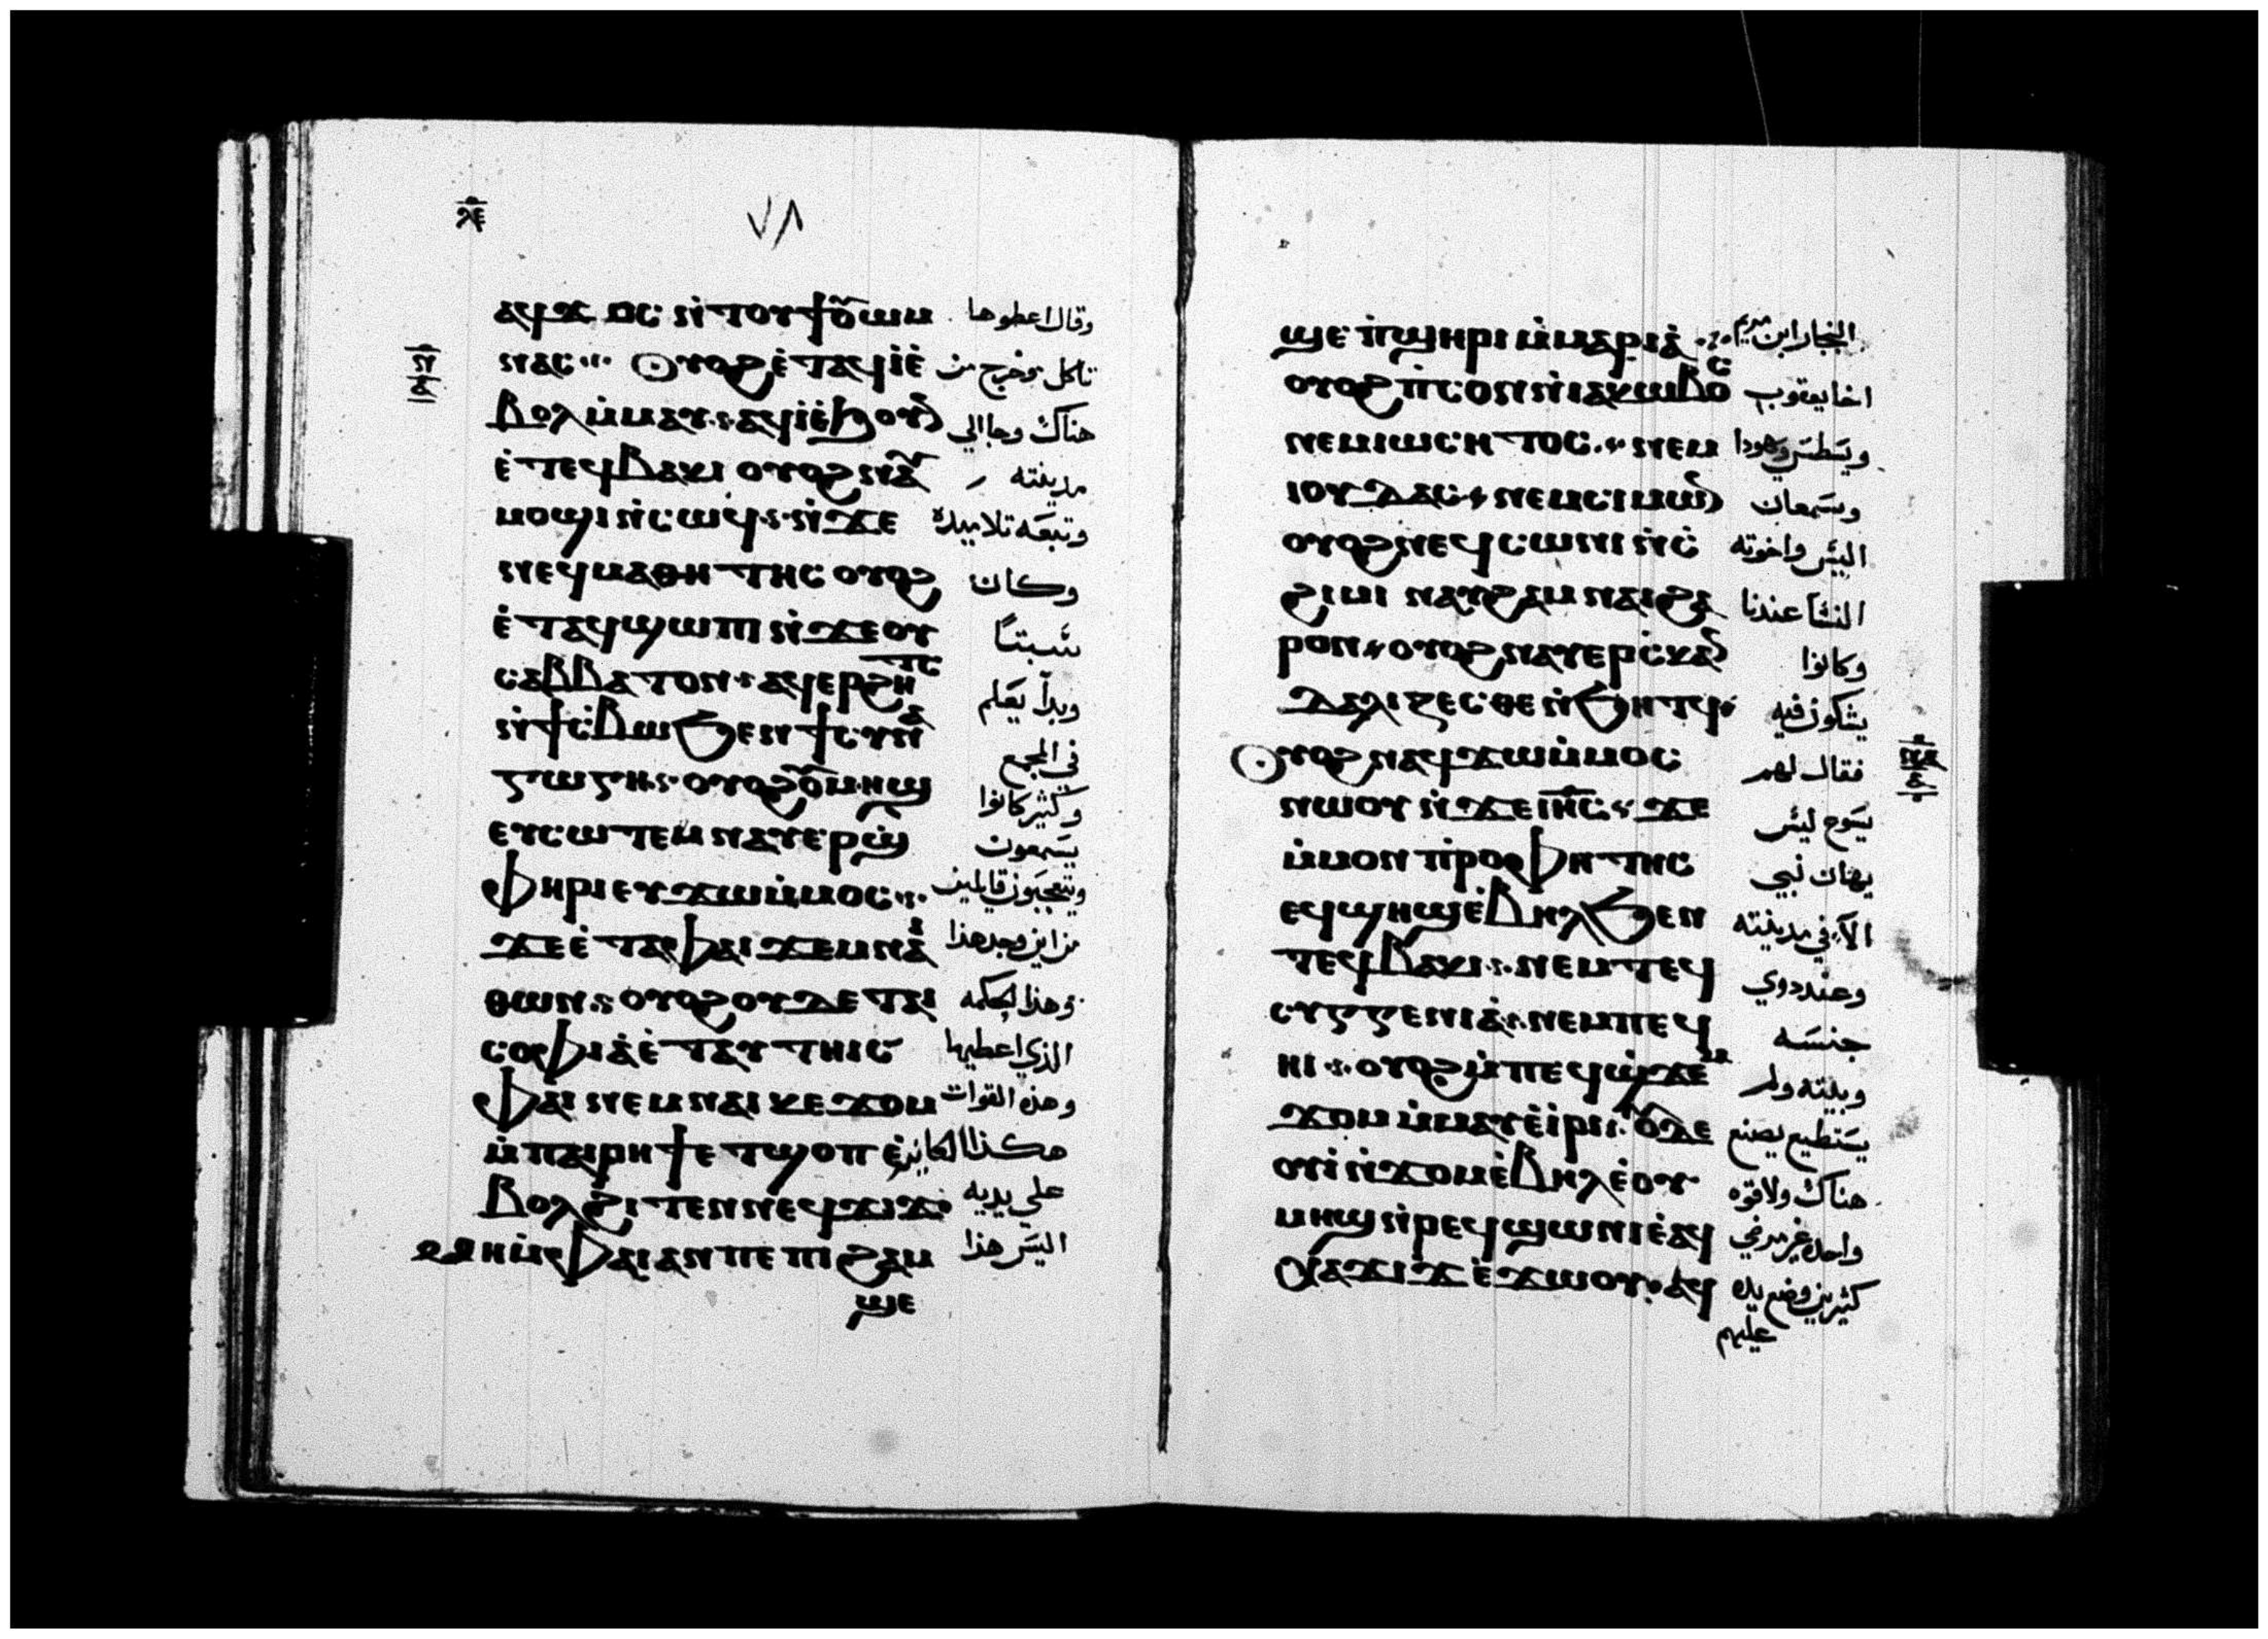 ⲗⲉ
٧٨
ⲁϥϫⲟⲥ ⲛ̀ⲧⲟⲩϯⲟ̅ⲩⲱⲙ وقال اعطوها
ⲛⲁⲥ Ⲟⲩⲟϩ ⲉ̀ⲧⲁϥⲓ̀ⲉ̀ تاكل وخرج من
ⲃⲟⲗ ⲙ̀ⲙⲁⲩ ⲁϥⲓ̀ⲉ̀ϧⲟⲩⲛ هناك وجا الي
ⲉ̀ⲧⲉϥⲃⲁⲕⲓ ⲟⲩⲟϩ ⲛⲁⲩ مدينته
ⲙⲟϣⲓ ⲛ̀ⲥⲱϥ ⲛ̀ϫⲉ وتبعه تلاميده
ⲛⲉϥⲙⲁⲑⲏⲧⲏⲥ ⲟⲩⲟϩ وكان
ⲉ̀ⲧⲁϥϣⲱⲡⲓ ⲛ̀ϫⲉⲟⲩ سبتاً
ⲥⲁⲃⲃⲁⲧⲟⲛ ⲁϥⲉⲣϩⲏⲧⲥ وبدا يعلم
ⲛ̀ϯⲥ̀ⲃⲱ ϧⲉⲛ ϯⲥⲩⲛⲁ في المجمع
ⲅⲱⲅⲏ ⲟⲩⲟϩ ⲟⲩⲙⲏϣ وكثير كانوا
ⲉⲩⲥⲱⲧⲉⲙ ⲛⲁⲩⲉⲣϣ يسمعون
ⲫⲏⲣⲓ ⲉⲩϫⲱ ⲙ̀ⲙⲟⲥ ويتعجبون قايلين
ϫⲉ ⲉ̀ⲧⲁ ⲫⲁⲓ ϫⲉⲙ ⲛⲁⲓ من اين وجد هذا
ⲑⲱⲛ ⲟⲩⲟϩ ⲟⲩ ⲇⲉ ⲧⲁⲓ وهذا الحكمه
ⲥⲟⲫⲓⲁ̀ ⲉ̀ⲧⲁⲩⲧⲏⲓⲥ الذي اعطيها
ⲫⲁⲓ ⲛⲉⲙ ⲛⲁⲓⲕⲉϫⲟⲙ وهذه القوات
ⲙ̀ⲡⲁⲓⲣⲏϯ ⲉⲧϣⲟⲡ ⲉ̀ هكذا الكاين
ⲃⲟⲗ ϩⲓⲧⲉⲛ ⲛⲉϥϫⲓϫ علي يديه
ⲙⲏ ⲙ̀ⲫⲁⲓ ⲁⲛ ⲡⲉ ⲡⲓϩⲁⲙ اليس هذا
ϣⲉ
ϣⲉ ⲡ̀ϣⲏⲣⲓ ⲙ̀ⲙⲁⲣⲓⲁ̀ النجار ابن مريم
ⲟⲩⲟϩ ⲡ̀ⲥⲟⲛ ⲛ̀ⲓⲁⲕⲱⲃⲟⲥ اخا يعقوب
ⲛⲉⲙ ⲓⲱⲥⲏⲧⲟⲥ ⲛⲉⲙ ويسطس ويهودا
ⲓⲟⲩⲇⲁⲥ ⲛⲉⲙ ⲥⲓⲙⲱⲛ وسمعان
ⲟⲩⲟϩ ⲛⲉϥⲥⲱⲛⲓ ⲛ̀ⲥ̀ اليس واخوته
ϩⲓⲙⲓ ⲛⲁⲩϩⲁⲙⲛⲁⲓ ϩⲁ النسا عندنا
ⲣⲟⲛ ⲟⲩⲟϩ ⲛⲁⲩⲉⲣⲥ̀ⲕⲁⲛ وكانوا
ⲇⲁⲗⲓⲍⲉⲥⲑⲉ ⲛ̀ϧⲏⲧϥ يشكون فيه
Ⲟⲩⲟϩ ⲛⲁϥϫⲱ ⲙ̀ⲙⲟⲥ فقال لهم
ⲛⲱⲟⲩ ⲛ̀ϫⲉ ⲓⲏ̅ⲥ ϫⲉ يسوع ليس
ⲙ̀ⲙⲟⲛ ⲡⲣⲟⲫⲏⲧⲏⲥ يهان نبي
ⲉϥϣⲏϣ ⲉ̀ⲃⲏⲗ ϧⲉⲛ الا في مدينته
ⲧⲉϥⲃⲁⲕⲓ ⲛⲉⲙ ⲧⲉϥ وعند دوي
ⲥⲩⲅⲅⲉⲛⲓⲁ̀ ⲛⲉⲙ ⲡⲉϥ جنسه
ⲏⲓ ⲟⲩⲟϩ ⲙ̀ⲡⲉϥϣ̀ϫⲉⲙ وبيته ولم
ϫⲟⲙ ⲙ̀ⲙⲁⲩ ⲉ̀ⲓ̀ⲣⲓ ⲟⲩⲇⲉ يستطيع يصنع
ⲟⲩⲓ̀ ⲛ̀ϫⲟⲙ ⲉ̀ⲃⲏⲗ ⲉ̀ⲟⲩ هناك ولا قوه
ⲙⲏϣ ⲛ̀ⲣⲉϥϣⲱⲛⲓ ⲉ̀ⲁϥ واحده غير مرضي
ⲭⲁ ϫⲓϫ ⲉ̀ϫⲱⲟⲩ ⲁϥ كثيرين وضع يده
عليهم